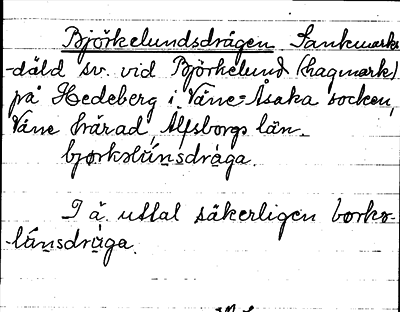 Björkelundsdrågen Sankmarks-
däld sv. vid Björkelund (hagmark)
på Hedeberg i Väne-Åsaka socken,
Väne härad, Älfsborgs län.
bjørkəlúnsdrága.
I ä. uttal säkerligen børkə-
lúnsdrága.